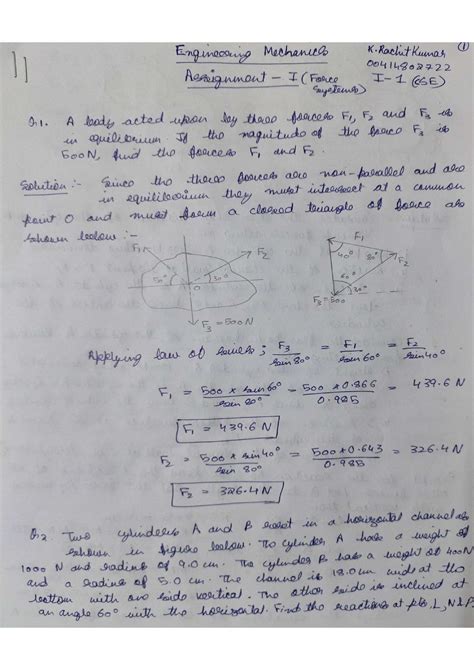 Engineering Mechanics
K. Rachit Kumar
1
11
00414802722
Assignment - I (Force Systems)
I-1 (CSE)
Q.1. A body acted upon by three forces F1, F2 and F3 is
in equilibrium If the magnitude of the force F3 is
500N, find the forces F1 and F2.
Solution :- Since the three forces are non-parallel and are
in equilibrium they must intersect at a common
point O and must form a closed triangle of force as
shown below :-
F1
50°
30°
F2
O
F3 = 500N
F1
40°
80°
F2
60°
30°
F3 = 500
Applying law of sines ; F3/sin80° = F1/sin60° = F2/sin40°
F1 = 500 x sin60°/sin80° = 500x0.866/0.985 = 439.6 N
F1 = 439.6 N
F2 = 500 x sin40°/sin 80° = 500x0.643/0.985 = 326.4 N
F2 = 326.4 N
Q.2. Two cylinders A and B rest in a horizontal channel as
shown in figure below. The cylinder A has a weight of
1000 N and radius of 9.0 cm. The cylinder B has a weight of 400N
and a radius of 5.0 cm. The channel is 18.0 cm wide at the
bottom with one side vertical. The other side is inclined at
an angle 60° with the horizontal. Find the reactions at pts, L, N & P.